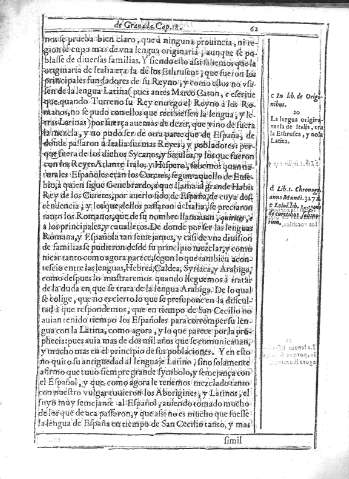 de Granada. Cap. 18. 62
mas se prueba bien claro, que à ninguna prouincia, ni re-
gion se cupo mas de vna lengua originaria, aunque se po
blasse de diuersas familias. Y siendo esto assi sabemos que la
originaria de Italia era la de los Etruscos, que fueron los
principales fundadores de su Reyno, y como ellos no vsa-
sen de la lengua Latina, pues antes Marco Caton, refiere
que quando Turreno su Rey entregò el Reyno à los Ro-
manos, no se pudo con ellos que recibiessen la lengua, y le-
tras Latinas
la mezcla, y no pudo ser de otra parte que de España, de
donde passaron à Italia sus mas Reyes, y pobladores: por
que fuera de los dichos Sycanos, y Siculos, y los que fueron
con los Reyes Atlante Italo, y Hespero, sabemos
rales Españoles eran los
bio, à quien sigue Genebrardo, à que llama el grande Habis
Rey de los Curetes, por auerlo sido de España, de cuya
cendencia, y los que dellos passaron à Italia, se preciaron
tanto los Romanos, que de su nombre llamauan, quirites,
a los principales, y caualleros. De donde por ser las lenguas
Romana, y Española tan semejantes, y casi de vna diuision
de familias se pudieron desde su principio mezclar, y comu
nicar tanto como agora parece, segun lo que tambien acon-
tescio entre las lenguas, Hebrea, Caldea, Syriaca, y Arabiga,
como despues lo mostraremos quando lleguemos à tratar
de la duda en, que se trata de la lengua Arabiga. De lo qual
se colige, que no es cierto lo que se presupone en la dificul-
tad à que respondemos, que en tiempo de San Cecilio no
auian tenido tiempo los Españoles para corromper su len-
gua con la Latina, como agora, y lo que parece por la pro-
phecia: pues auia mas de dos mil años que se comunicauan,
y mucho mas en el principio de sus poblaciones. Y en esto
no quito su antiguedad al lenguaje Latino, sino solamente
affirmo que tuuo siempre grande symbolo, y semejança con
el Español, y que como agora le tenemos mezclado tanto
con nuestro vulgar tuuieron los Aborigines, y Latinos, el
suyo muy semejante al Español, auiendo tomado mucho
de los que de aca passaron, y que assi no es mucho que fuesse
la lengua de España en tiempo de San Cecilio tanto, y mas
simil
c In lib. de Origi-
nibus.
10
La lengua origina-
ria de Italia, era
la Etrusca, y no la
Latina.
d Lib. 1. Chronog.